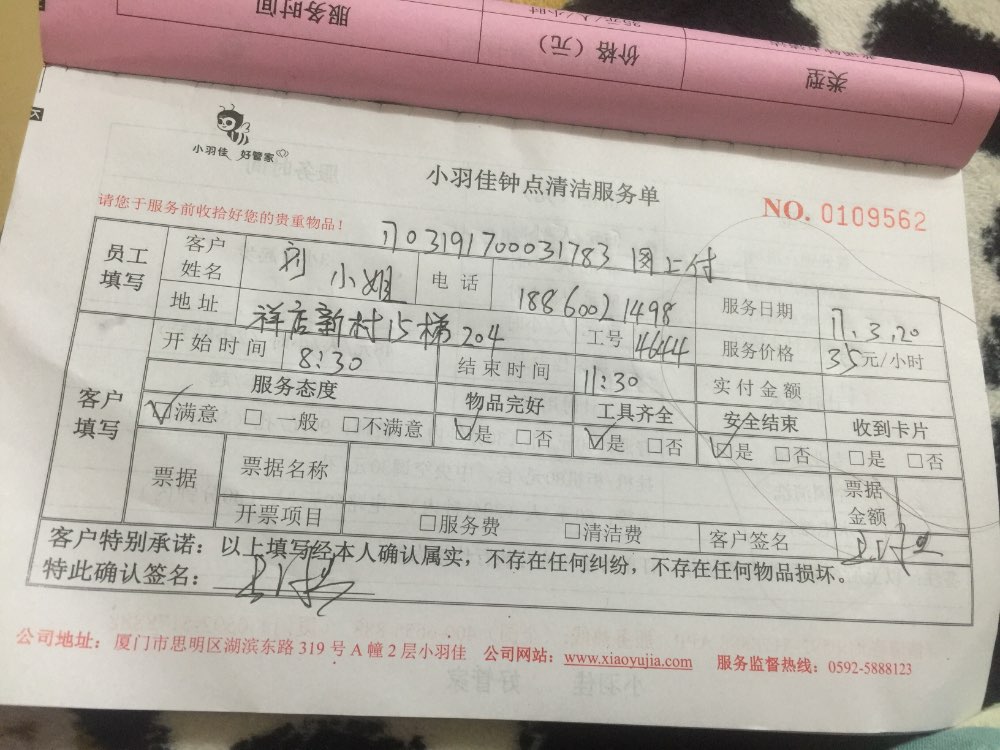 服务时间
价格（元）
类型
35元/人/小时
小羽佳 好管家
小羽佳钟点清洁服务单
请您于服务前收拾好您的贵重物品！
NO. 0109562
1703191700031783 网上付
员工填写 客户姓名 刘小姐 电话 18860021498 服务日期 17.3.20
地址 祥店新村15梯204 工号 4644 服务价格 35元/小时
客户填写 开始时间 8:30 结束时间 11:30 实付金额
服务态度 物品完好 工具齐全 安全结束 收到卡片
☑满意 □一般 □不满意 ☑是 □否 ☑是 □否 ☑是 □否 □是 □否
票据 票据名称 票据金额
开票项目 □服务费 □清洁费 客户签名
客户特别承诺：以上填写经本人确认属实，不存在任何纠纷，不存在任何物品损坏。
特此确认签名：
公司地址：厦门市思明区湖滨东路 319 号 A 幢 2 层小羽佳 公司网站：www.xiaoyujia.com 服务监督热线：0592-5888123